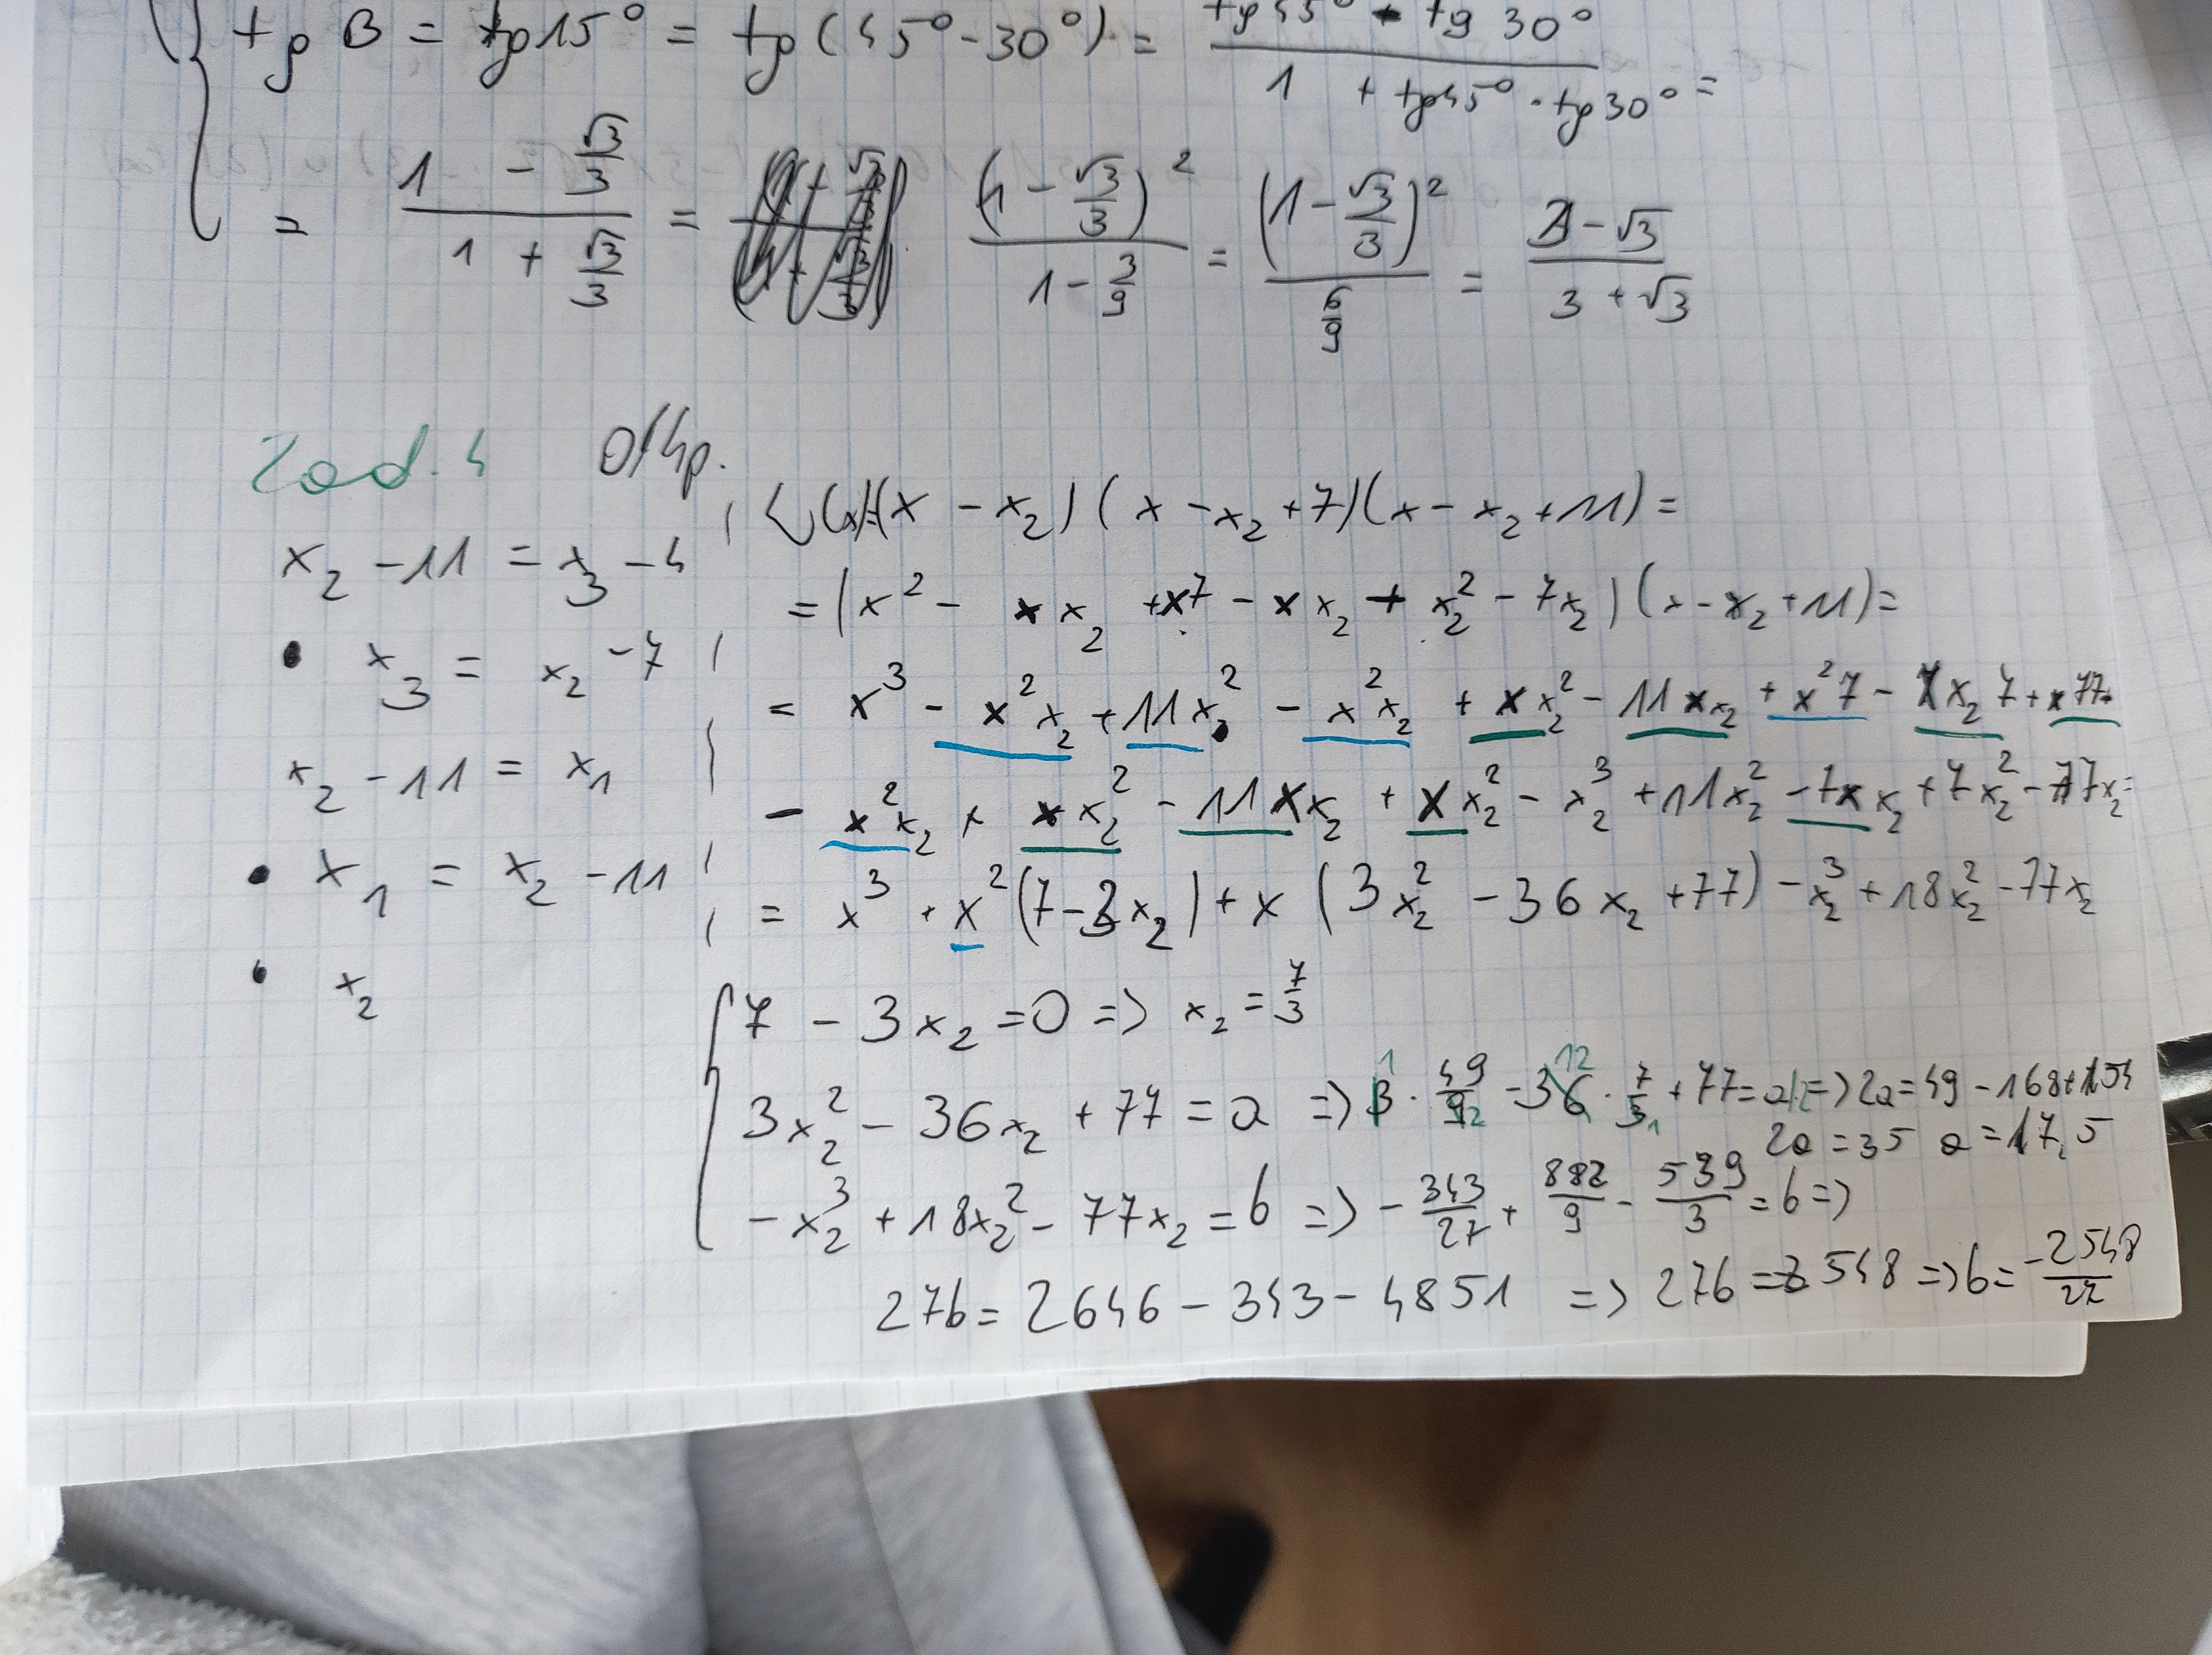 tg B = tg15° = tg(45°-30°) = (tg45° - tg 30°)/(1 + tg45° · tg30°) =
= (1 - √3/3)/(1 + √3/3) = (1 - √3/3)²/(1 - 3/9) = (1 - √3/3)²/(6/9) = (3 - √3)/(3 + √3)
Zad. 4
x₂ - 11 = x₃ - 4
• x₃ = x₂ - 7
x₂ - 11 = x₁
• x₁ = x₂ - 11
• x₂
W(x)=(x - x₂)(x - x₂ + 7)(x - x₂ + 11) =
= (x² - x x₂ + x7 - x x₂ + x₂² - 7x₂)(x - x₂ + 11) =
= x³ - x²x₂ + 11x² - x²x₂ + x x₂² - 11x x₂ + x²7 - x x₂ 7 + x 77
- x²x₂ + x x₂² - 11x x₂ + x x₂² - x₂³ + 11x₂² - 7x x₂ + 7x₂² - 77x₂ =
= x³ + x²(7 - 3x₂) + x (3x₂² - 36x₂ + 77) - x₂³ + 18x₂² - 77x₂
7 - 3x₂ = 0 => x₂ = 7/3
3x₂² - 36x₂ + 77 = a => 3 · 49/9 - 36 · 7/3 + 77 = a |·2 => 2a = 49 - 168 + 154
2a = 35 a = 17,5
- x₂³ + 18x₂² - 77x₂ = b => - 343/27 + 882/9 - 539/3 = b =>
27b = 2646 - 343 - 4851 => 27b = 2548 => b = -2548/27